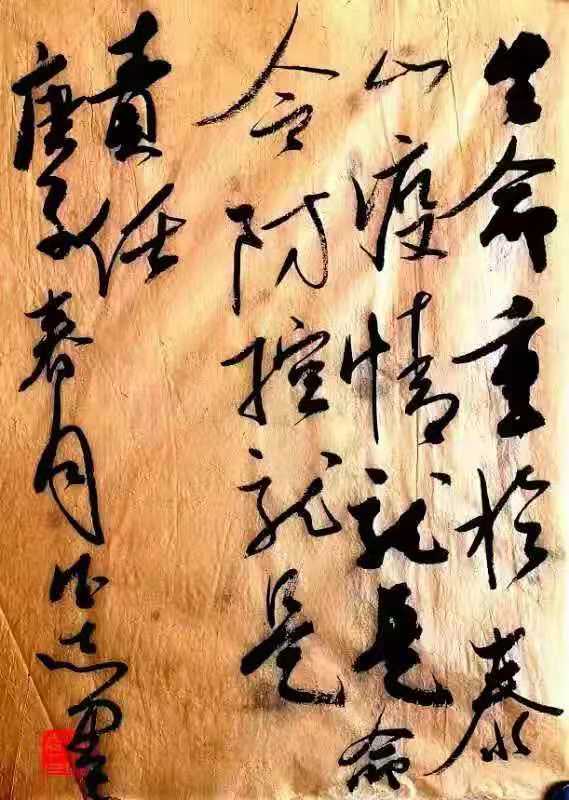 生命重於泰
山疫情就是命
令防控就是
責任
庚子春月 志書